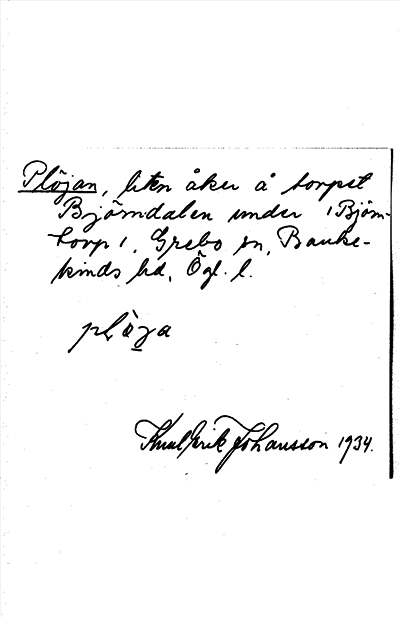 Plöjan, liten åker å torpet
Björndalen under 1 Björn-
torp 1, Grebo sn, Banke-
kinds hd, Ögl. l.
plöja
Knut Erik Johansson 1934.